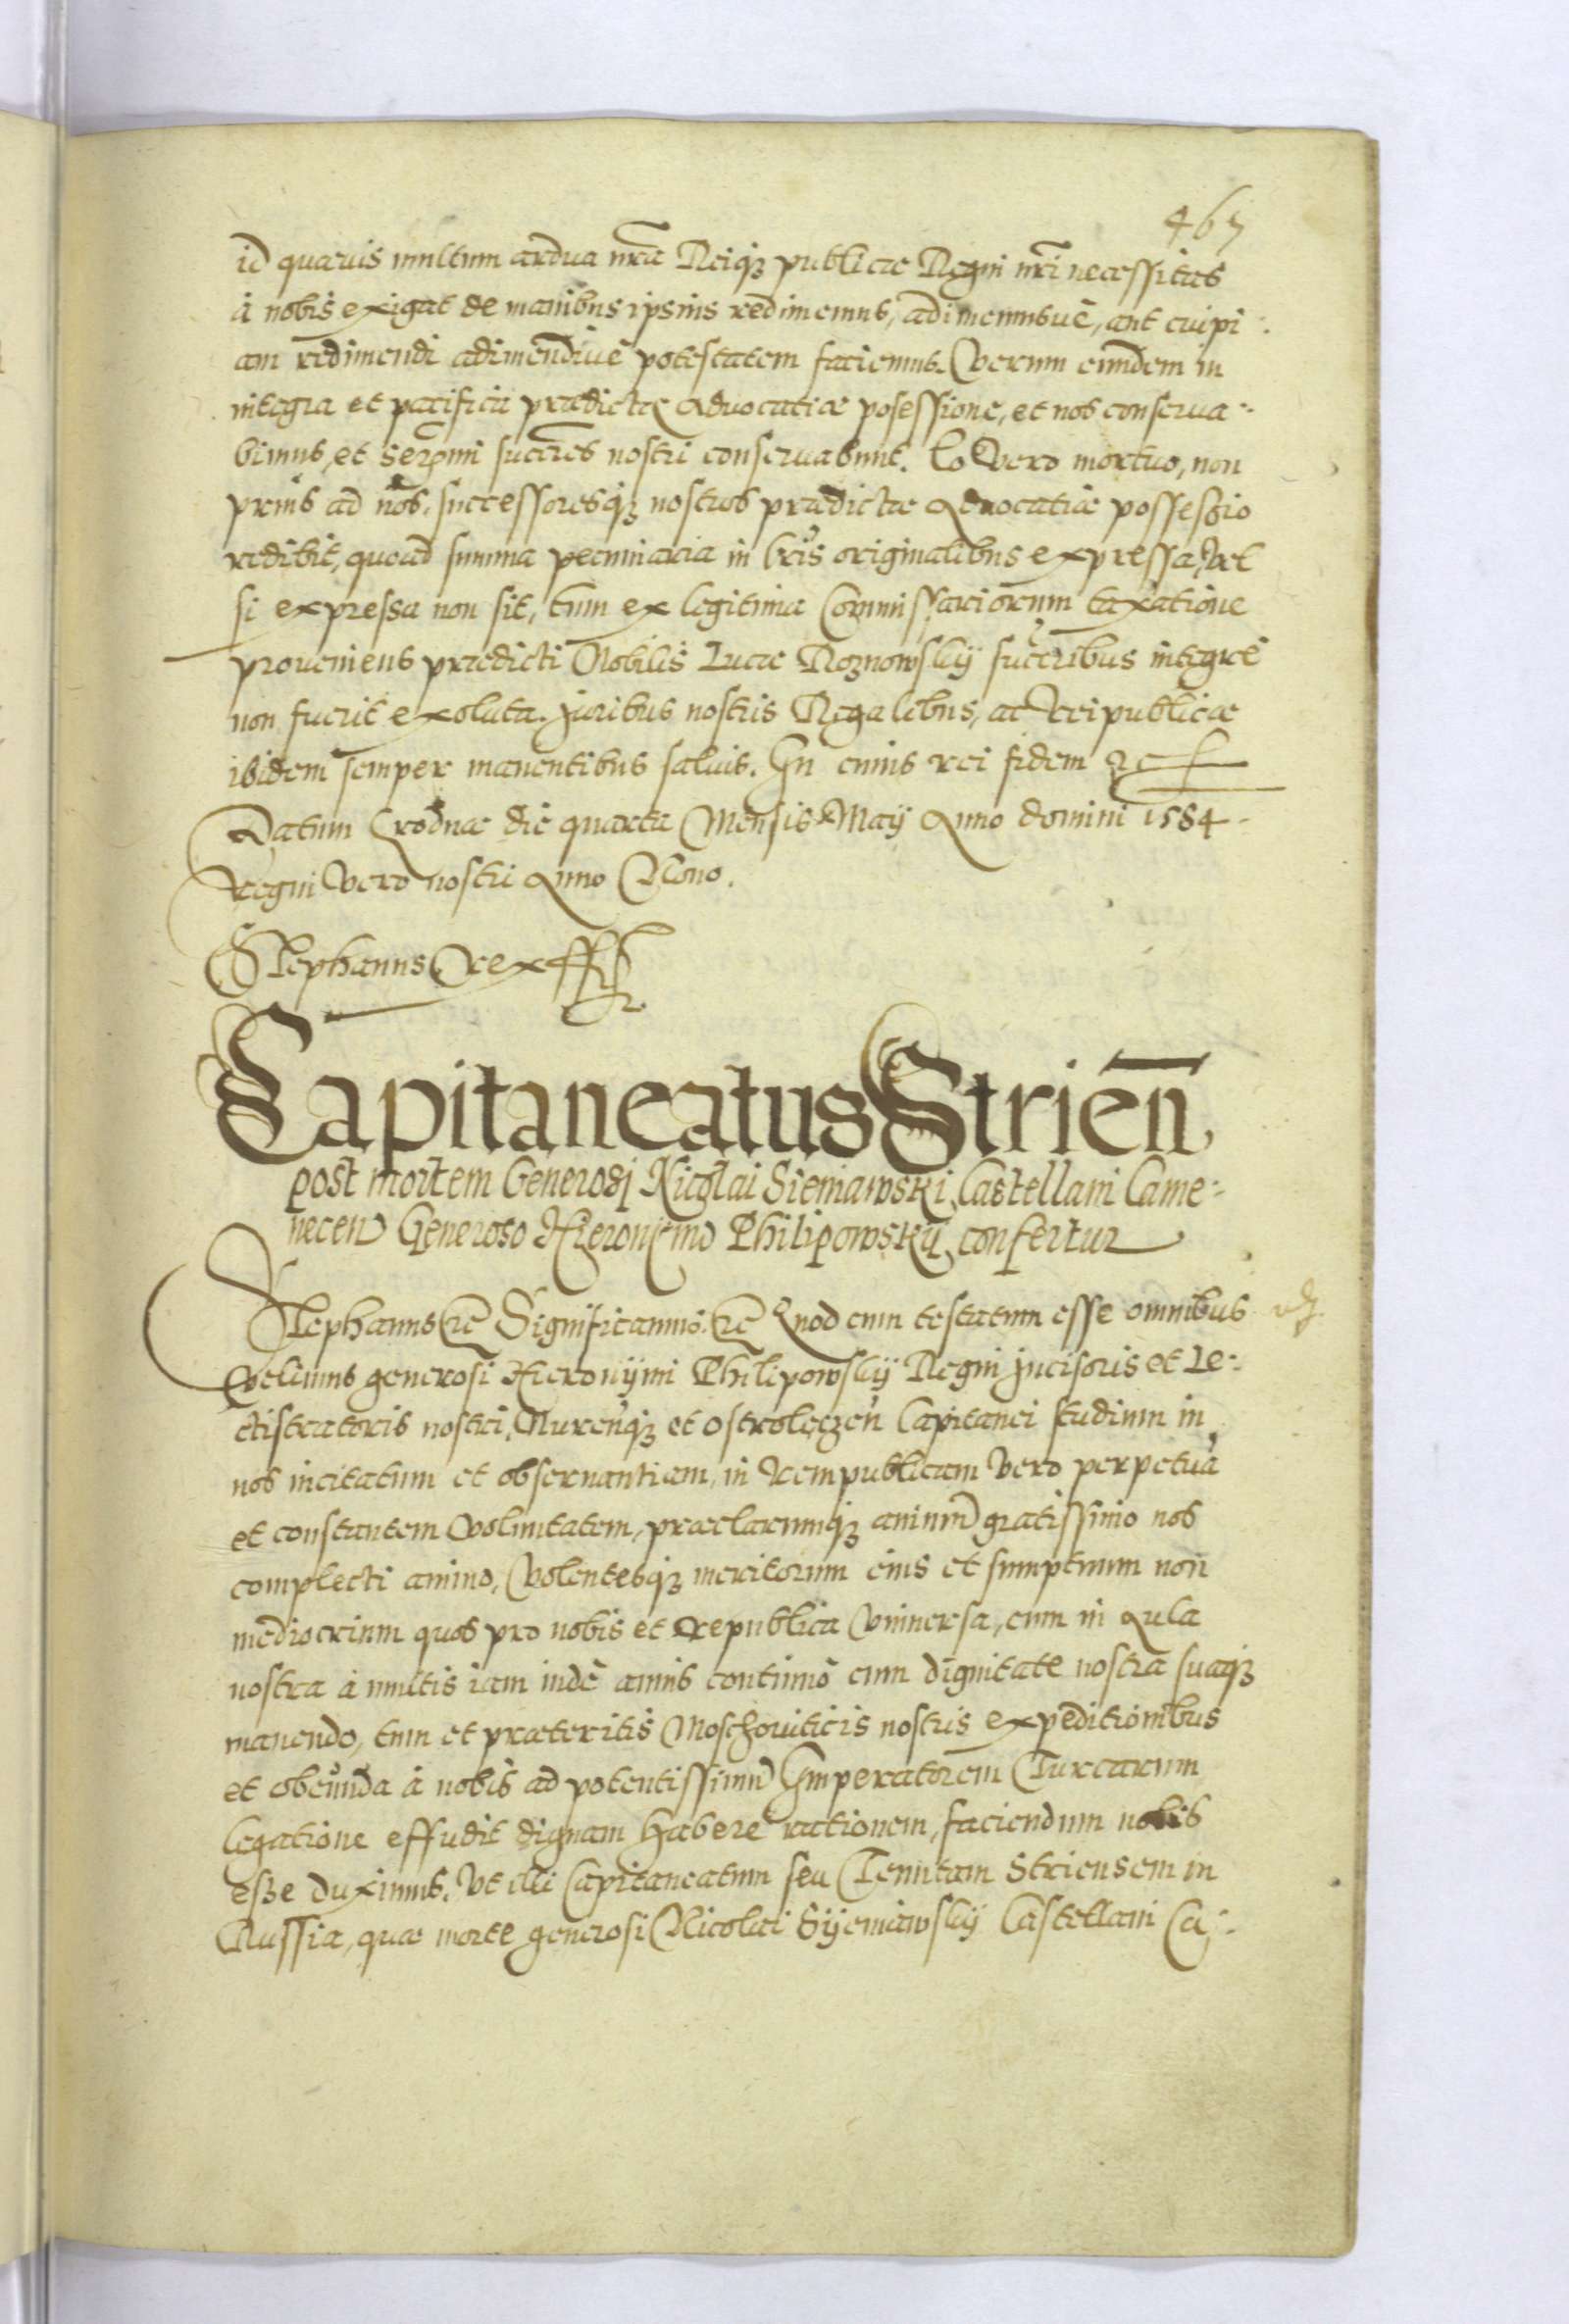 467
id quævis multum ardua nr̃a Reiq₃ publicæ Regni nr̃i necessitas
à nobis exigat de manibus ipsius redimemus, adimemusuè, aut cuipi:
am redimendi adimendiuè potestatem faciemus. Verum eundem in
integra et pacifica prædictæ Aduocatiæ posessione, et nos conserua:
bimus, et Serẽmi succẽres nostri conseruabunt. Eo Vero mortuo, non
prius ad nõs, successoresq₃ nostros prædictæ Aduocatiæ possessio
redibit, quoad summa pecuniaria in lr̃is originalibus expressa, vel
si expressa non sit, tum ex legitima Commissariorum taxatione
proueniens prædicti Nobilis Lucæ Roznowskÿ succẽribus integrè
non fuerit exoluta. Juribus nostris Regalibus, ac Reipublicæ
ibidem semper manentibus saluis. In cuius rei fidem etc
Datum Grodnæ die quarta Mensis Maÿ Anno domini 1584.
Regni Vero nostri Anno Nono.
Stephanus Rex
Capitaneatus Strien̄
post mortem Generosi Nicolai Sieniawski Castellani Came:
necen Generoso Hieronimo Philipowskÿ confertur
Stephanus etc Significamus etc Quod cum testatum esse omnibus
Velimus generosi Hieronÿmi Philipowskÿ Regni Incisoris et Le:
ctistratoris nostri, Nuren̄q₃ et Ostrolęczen̄ Capitanei studium in
nos incitatum et obseruantiam, in Rempublicam Vero perpetuã
et constantem Voluntatem, præclarumq₃ animũ gratissimo nos
complecti animo, Volentesq₃ meritorum eius et sumptuum non
mediocrium quos pro nobis et Republica Vniuersa, cum in Aula
nostra à multis iam indè annis continuò cum dignitate nostra suaq₃
manendo, tum et præteritis Moschouiticis nostris expeditionibus
et obeunda à nobis ad potentissimũ Imperatorem Turcarum
legatione effudit dignam habere rationem, faciendum nobis
esse duximus, Vt illi Capitaneatum seu Tenutam Striensem in
Russia, quæ morte generosi Nicolai Sÿeniawskÿ Castellani Ca: